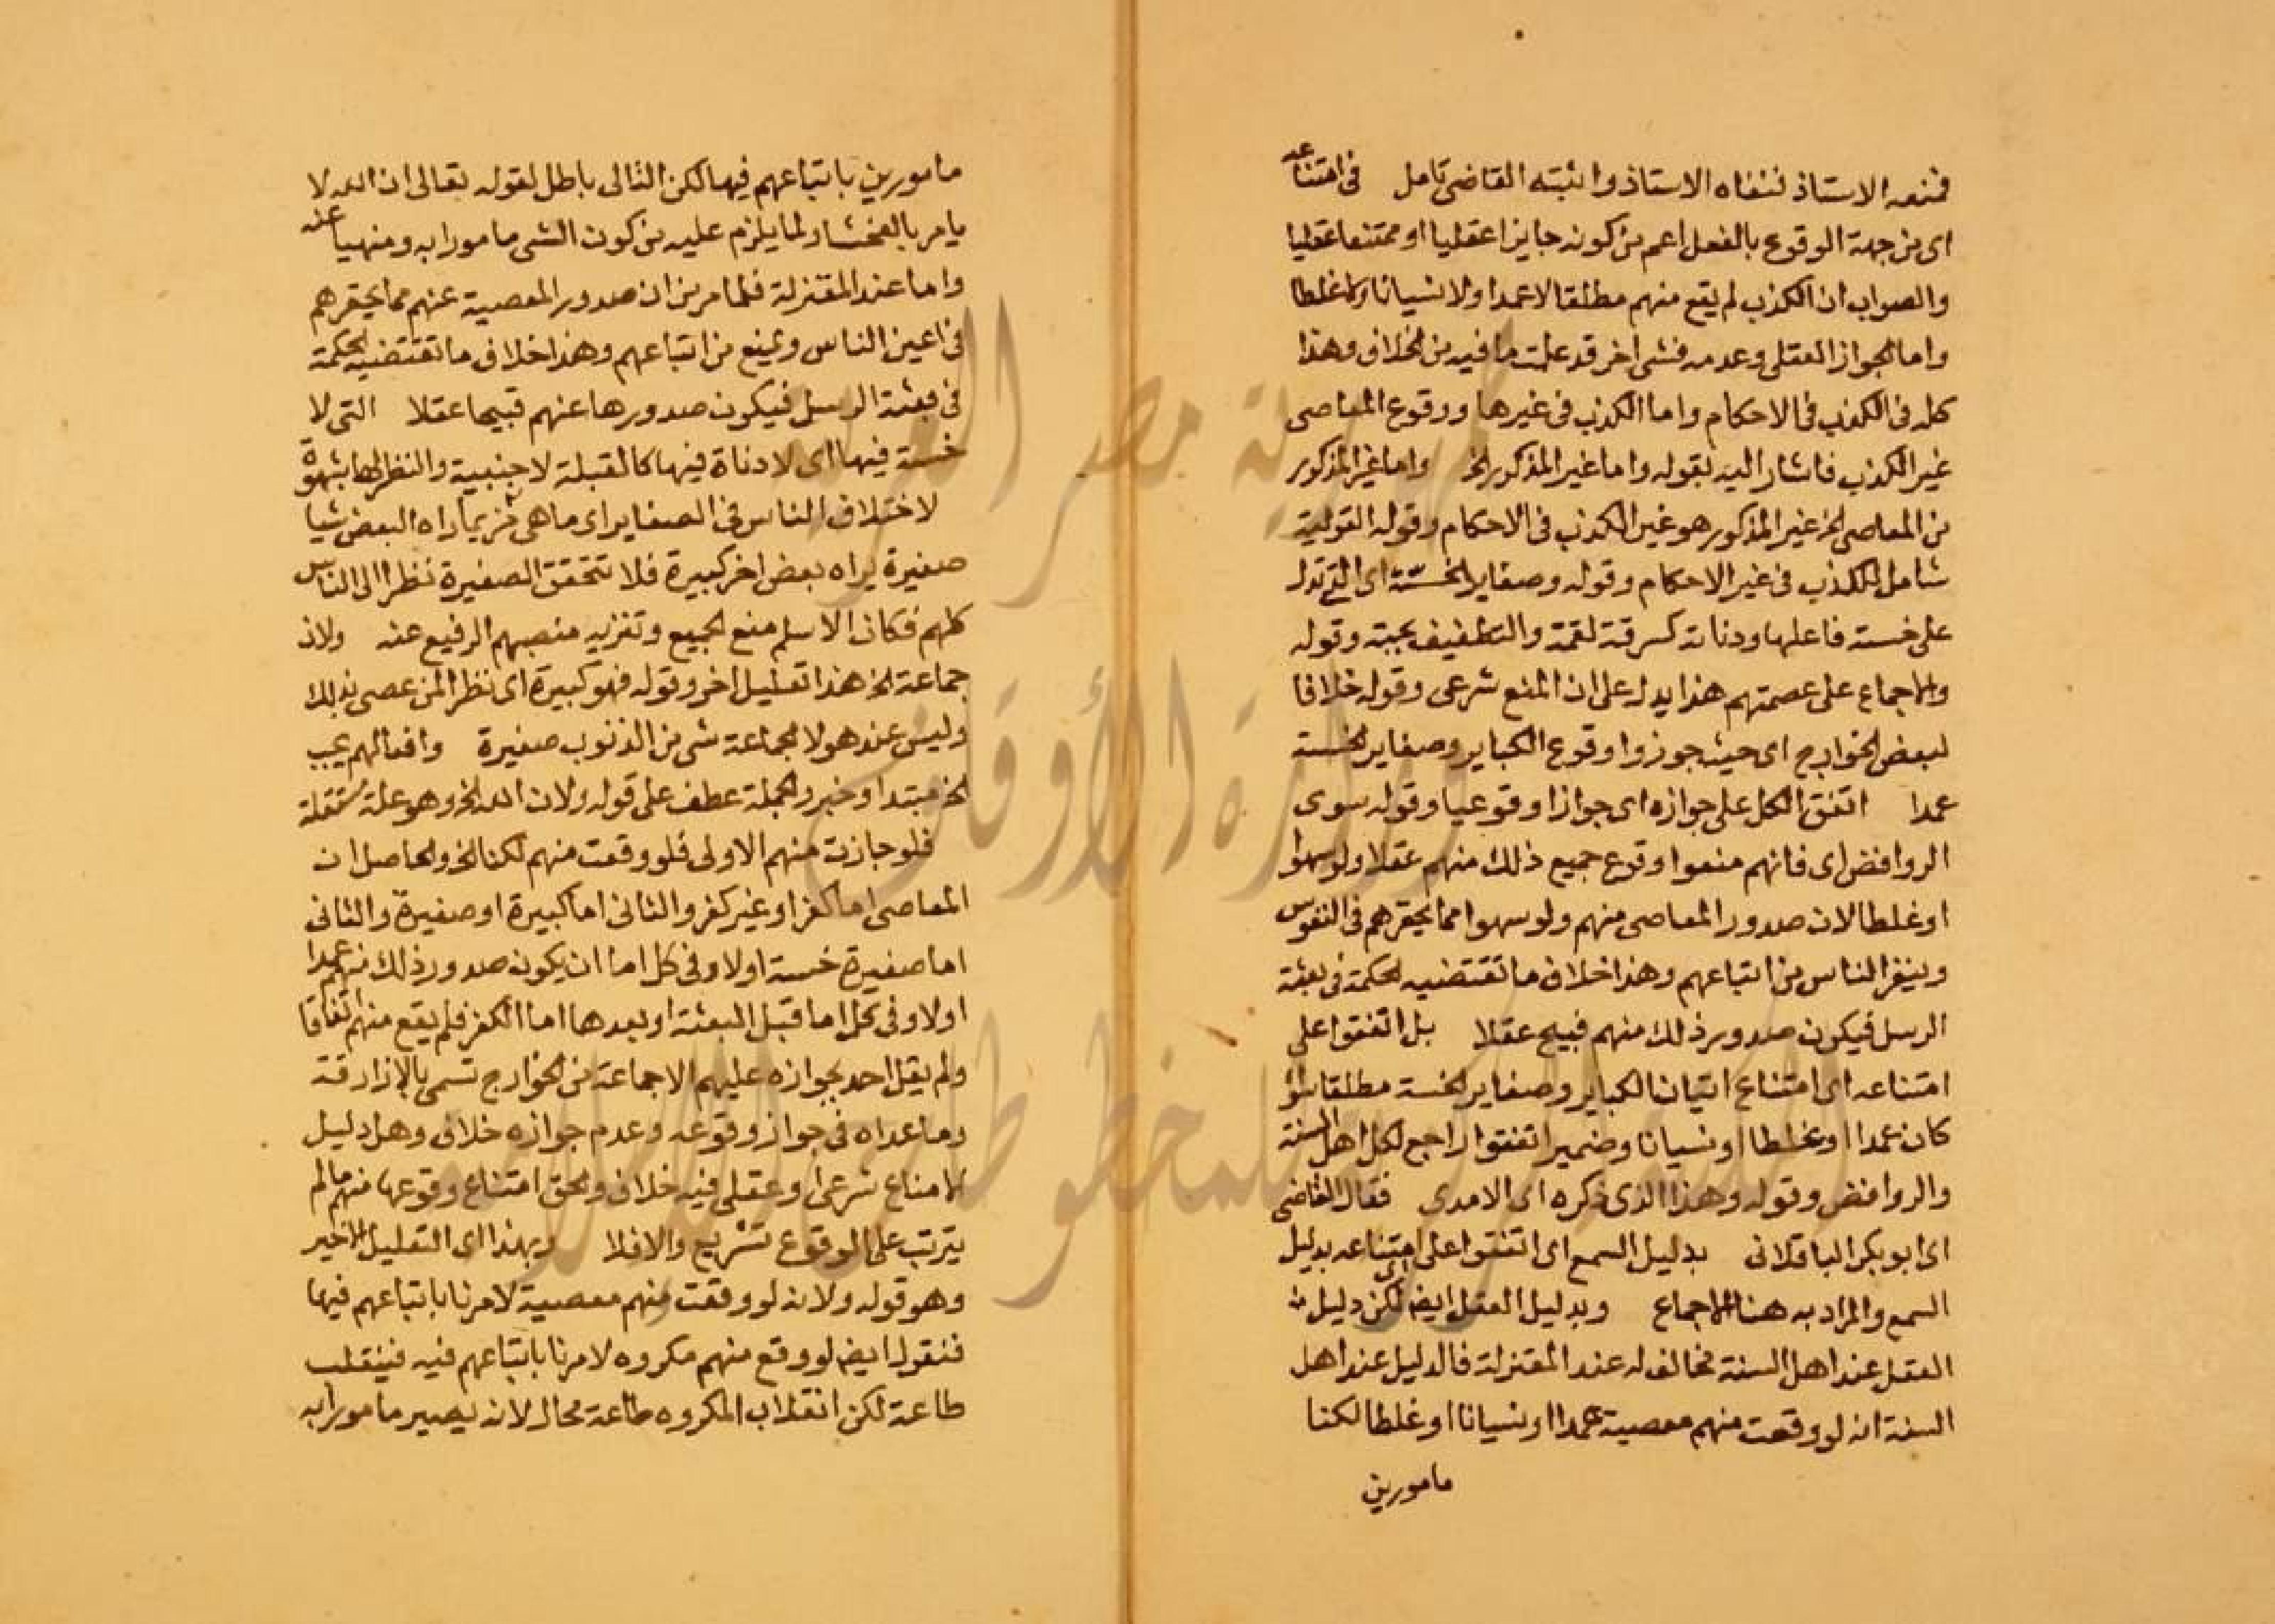 فمنعه الاستاذ فنفاه الاستاذ واثبته القاضى تامل فى امتناعه
اى من جهة الوقوع بالفعل اعم من كونه جايزا عقليا او ممتنعا عقليا
والصواب ان الكذب لم يقع منهم مطلقا لا عمدا ولا نسيانا ولا غلطا
واما الجواز العقلى وعدمه فشى اخر قد علمت ما فيه من الخلاف وهذا
كله فى الكذب فى الاحكام واما الكذب فى غيرها ووقوع المعاصى
غير الكذب فاشار اليه بقوله واما غير المذكور الخ واما غير المذكور
من المعاصى الخ غير المذكور هو غير الكذب فى الاحكام وقوله القولية
شامل للكذب فى غير الاحكام وقوله وصغاير الخسة اى التى تدل
على خسة فاعلها ودناته كسرقة لقمة والتطفيف بحبة وقوله
والاجماع على عصمتهم هذا يدل على ان المنع شرعى وقوله خلافا
لبعض الخوارج اى حيث جوزوا وقوع الكباير وصغاير الخسة
عمدا اتفق الكل على جوازه اى جوازا وقوعيا وقوله سوى
الروافض اى فانهم منعوا وقوع جميع ذلك منهم عقلا ولو سهوا
او غلطا لان صدور المعاصى منهم ولو سهوا مما يحقرهم فى النفوس
وينفر الناس من اتباعهم وهذا خلاف ما تقتضيه الحكمة فى بعثة
الرسل فيكون صدور ذلك منهم قبيح عقلا بل اتفقوا على
امتناعه اى امتناع اتيان الكباير وصغاير الخسة مطلقا سؤ
كان عمدا او غلطا او نسيانا وضمير اتفقوا راجع لكل اهل السنة
والروافض وقوله وهذا الذى ذكره اى الامدى فقال القاضى
اى ابو بكر الباقلانى بدليل السمع اى اتفقوا على امتناعه بدليل
السمع والمراد به هنا الاجماع وبدليل العقل ايض اى لكن دليل
العقل عند اهل السنة مخالف له عند المعتزلة فالدليل عند اهل
السنة انه لو وقعت منهم معصية عمدا او نسيانا او غلطا لكنا
مامورين
مامورين باتباعهم فيها لكن التالى باطل لقوله تعالى ان الله لا
يامر بالفحشا ولما يلزم عليه من كون الشى مامورا به ومنهيا عنه
واما عند المعتزلة فلما مر من ان صدور المعصية عنهم مما يحقرهم
فى اعين الناس ويمنع من اتباعهم وهذا خلاف ما تقتضيه الحكمة
فى بعثة الرسل فيكون صدورها عنهم قبيحا عقلا التى لا
خسة فيها اى لا دناة فيها كالقبلة لاجنبية والنظر لها بشهوة
لاختلاف الناس فى الصغاير اى ما هى فربما راه البعض شيا
صغيرة يراه بعض اخر كبيرة فلا تتحقق الصغيرة نظرا الى الناس
كلهم فكان الاسلم منع الجميع وتنزيه منصبهم الرفيع عنه ولان
جماعة الخ هذا تعليل اخر وقوله فهو كبيرة اى نظرا لمن عصى بذلك
وليس عند هولا الجماعة شى من الذنوب صغيرة وافعالهم يجب
الخ مبتدا وخبر والجملة عطف على قوله ولان الله الخ وهو علة مستقلة
فلو جازت منهم الاولى فلو وقعت منهم لكنا الخ والحاصل ان
المعاصى اما كفر او غير كفر والثانى اما كبيرة او صغيرة والثانى
اما صغيرة خسة او لا وفى كل اما ان يكون صدور ذلك منهم عمدا
او لا وفى كل اما قبل البعثة او بعدها اما الكفر فلم يقع منهم اتفاقا
ولم يقل احد بجوازه عليهم الا جماعة من الخوارج تسمى بالازارقة
وما عداه فى جواز وقوعه وعدم جوازه خلاف وهل دليل
الامناع شرعى او عقلى فيه خلاف والحق امتناع وقوعها منهم ما لم
يترتب على الوقوع تشريع والا فلا وبهذا اى التعليل الاخير
وهو قوله ولانه لو وقعت منهم معصية لامرنا باتباعهم فيها
فنقول ايض لو وقع منهم مكروه لامرنا باتباعهم فيه فينقلب
طاعة لكن انقلاب المكروه طاعة محال لانه يصير مامورا به
جمهورية مصر العربية
وزارة الأوقاف